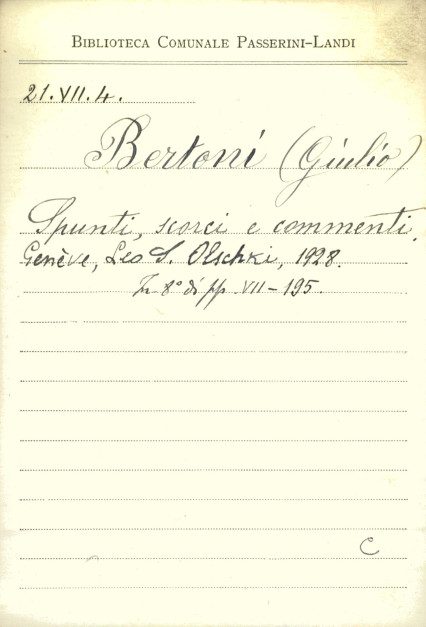 BIBLIOTECA COMUNALE PASSERINI-LANDI
21.VII.4.
Bertoni (Giulio)
Spunti, scorci e commenti.
Genève, Leo S. Olschki, 1928.
In 8° di pp. VII-195.
C